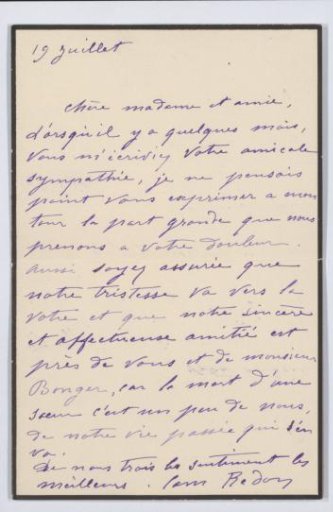 19 Juillet
Chère madame et amie,
Lorsqu'il y a quelques mois,
vous m'écriviez votre amicale
sympathie, je ne pensais
point vous exprimer a mon
tour la part grande que nous
prenons a votre douleur.
aussi soyez assurée que
notre tristesse va vers la
votre et que notre sincère
et affectueuse amitié est
près de vous et de monsieur
Bonger, car la mort d'une
sœur c'est un peu de nous,
de notre vie passée qui s'en
va.
De nous trois les sentiment les
meilleurs. Redon